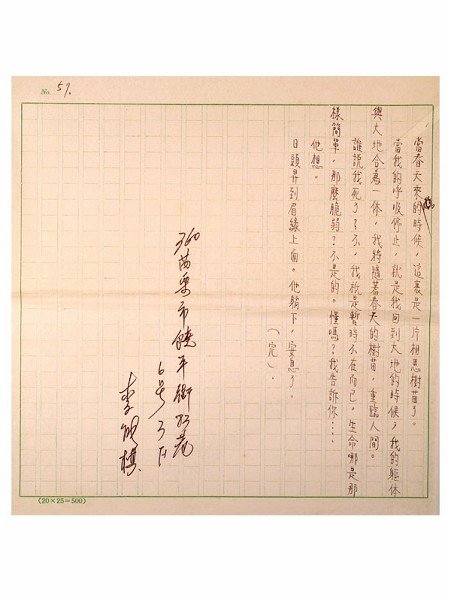 No. 57.
當春天來的時候，這裏是一片相思樹苗了。
當我的呼吸停止，就是我回到大地的時候，我的軀体
與大地合為一体，我將隨著春天的樹苗，重臨人間。
誰說我死了？不，我祇是暫時不在而已，生命哪是那
樣簡單，那麼脆弱？不是的。懂嗎？我告訴你…
他想。
日頭昇到眉緣上面。他躺下，安息了。
（完）.
360苗栗市饒平街
6号3F
李能棋
(20×25=500)